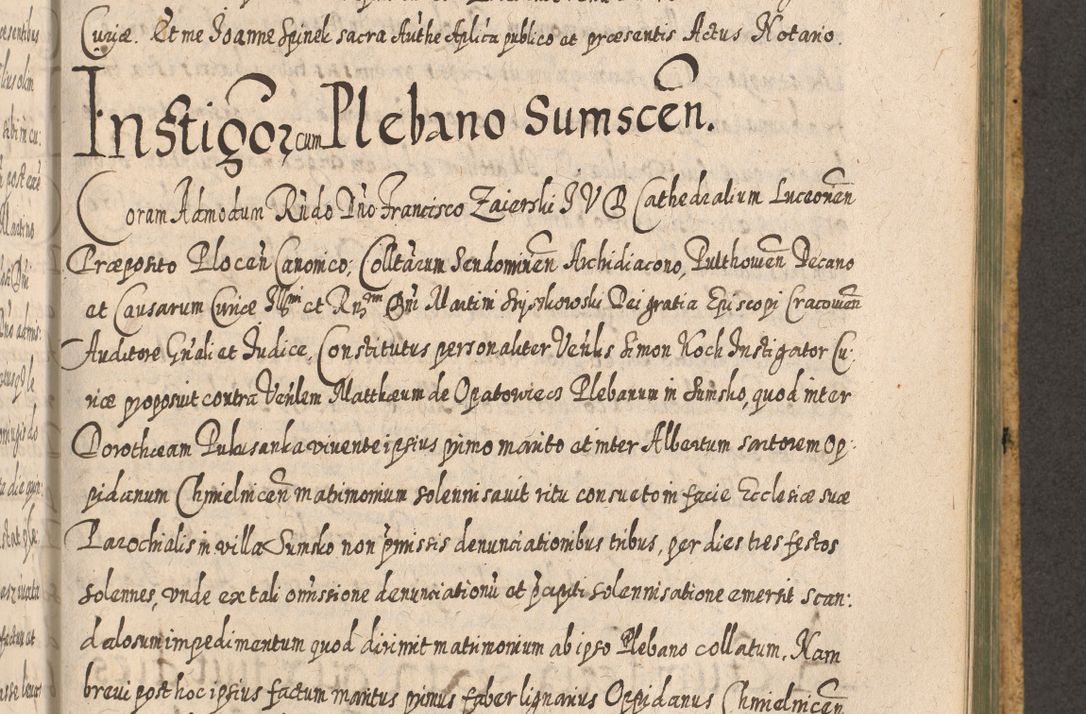 Curiæ. Et me Joanne Spinek sacra Authe Aplica publico et præsentis Actus Notario.
Instigor cum Plebano Sumscen.
Coram Admodum Rndo Dno Francisco Zaierski J V D Cathedralium Luceonen
Præposito Plocen Canonico, Colltarum Sendomirien Archidiacono, Pulthowen Decano
et Causarum Curiæ Illmi et Rndmi Dni Martini Szyszkowski Dei gratia Episcopi Cracovien
Auditore Gnali et Judice, Constitutus personaliter Venlis Simon Koch Instigator Cu:
riæ proposuit contra Venlem Matthæum de Opatowiecz Plebanum in Sumsko, quod inter
Dorotheam Pukusanka vivente ipsius primo marito et inter Albertum sartorem Op:
pidanum Chmielnicen matrimonium solennisavit ritu consueto in facie Ecclesiæ suæ
Parochialis in villa Sumsko non pmissis denunciationibus tribus, per dies tres festos
solennes, vnde ex tali omissione denunciationu et præcipiti solennisatione emersit scan:
dalosum impedimentum quod dirimit matrimonium ab ipso Plebano collatum. Nam
brevi post hoc ipsius factum maritus primus faber lignarius Oppidanus Chmielnicen